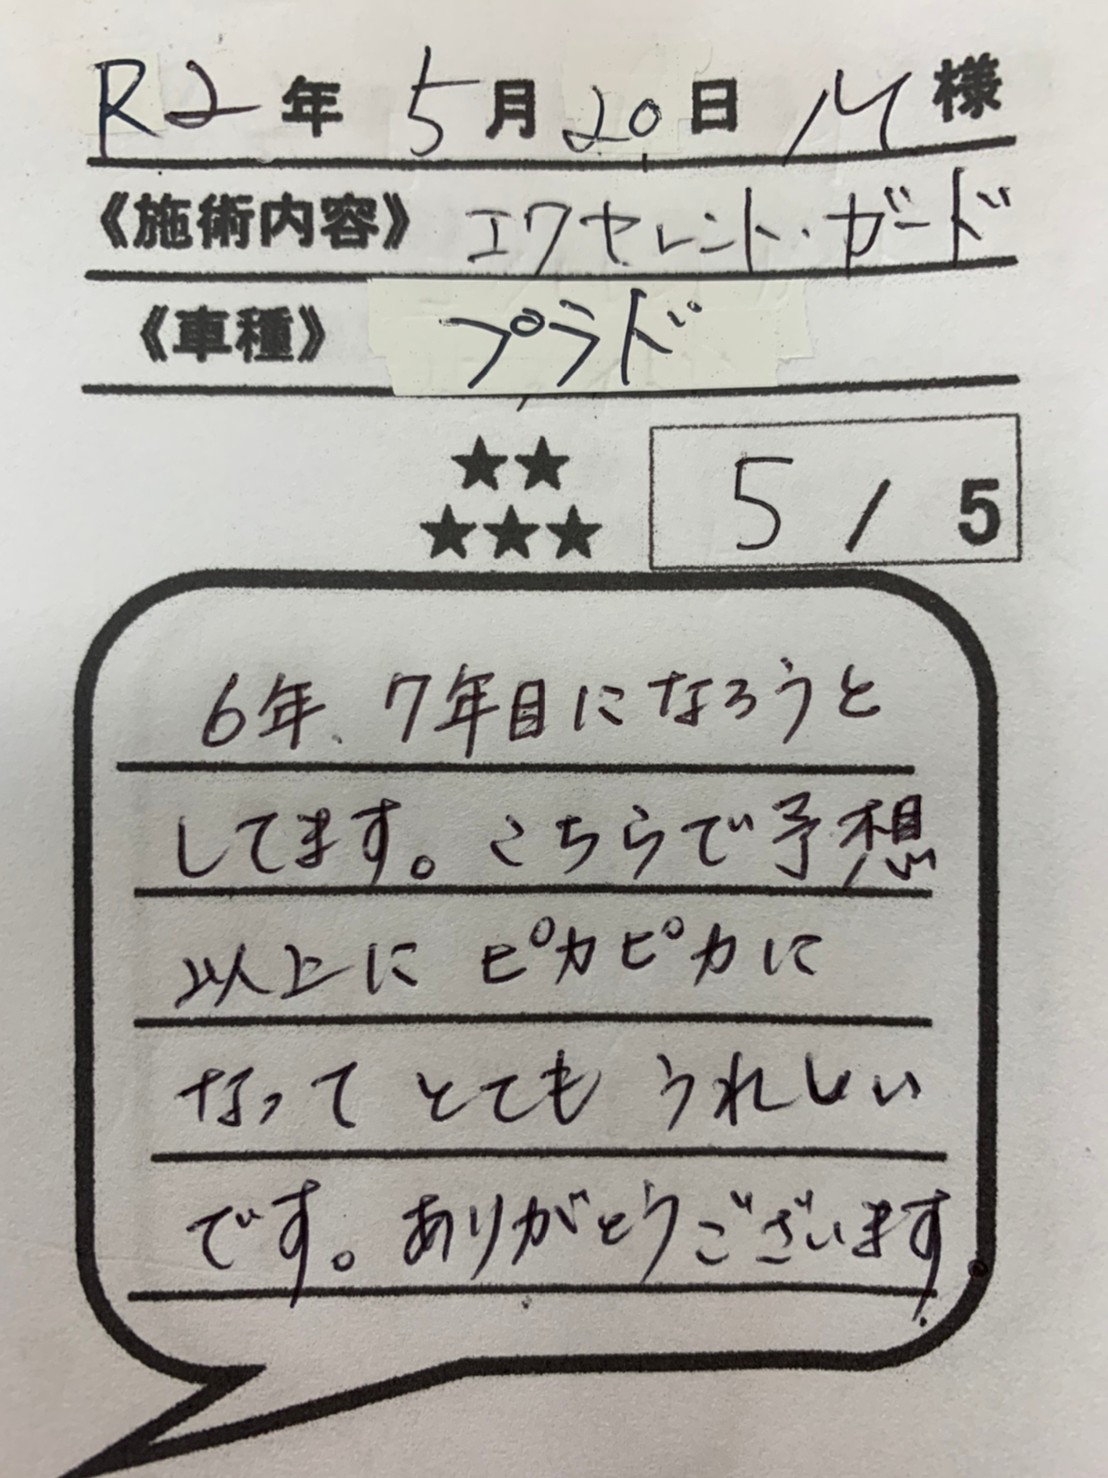 R2年 5月20日 M様
《施術内容》 エクセレント・ガード
《車種》 プラド
★★
★★★
5 / 5
6年、7年目になろうと
してます。こちらで予想
以上に ピカピカに
なって とても うれしい
です。ありがとうございます。